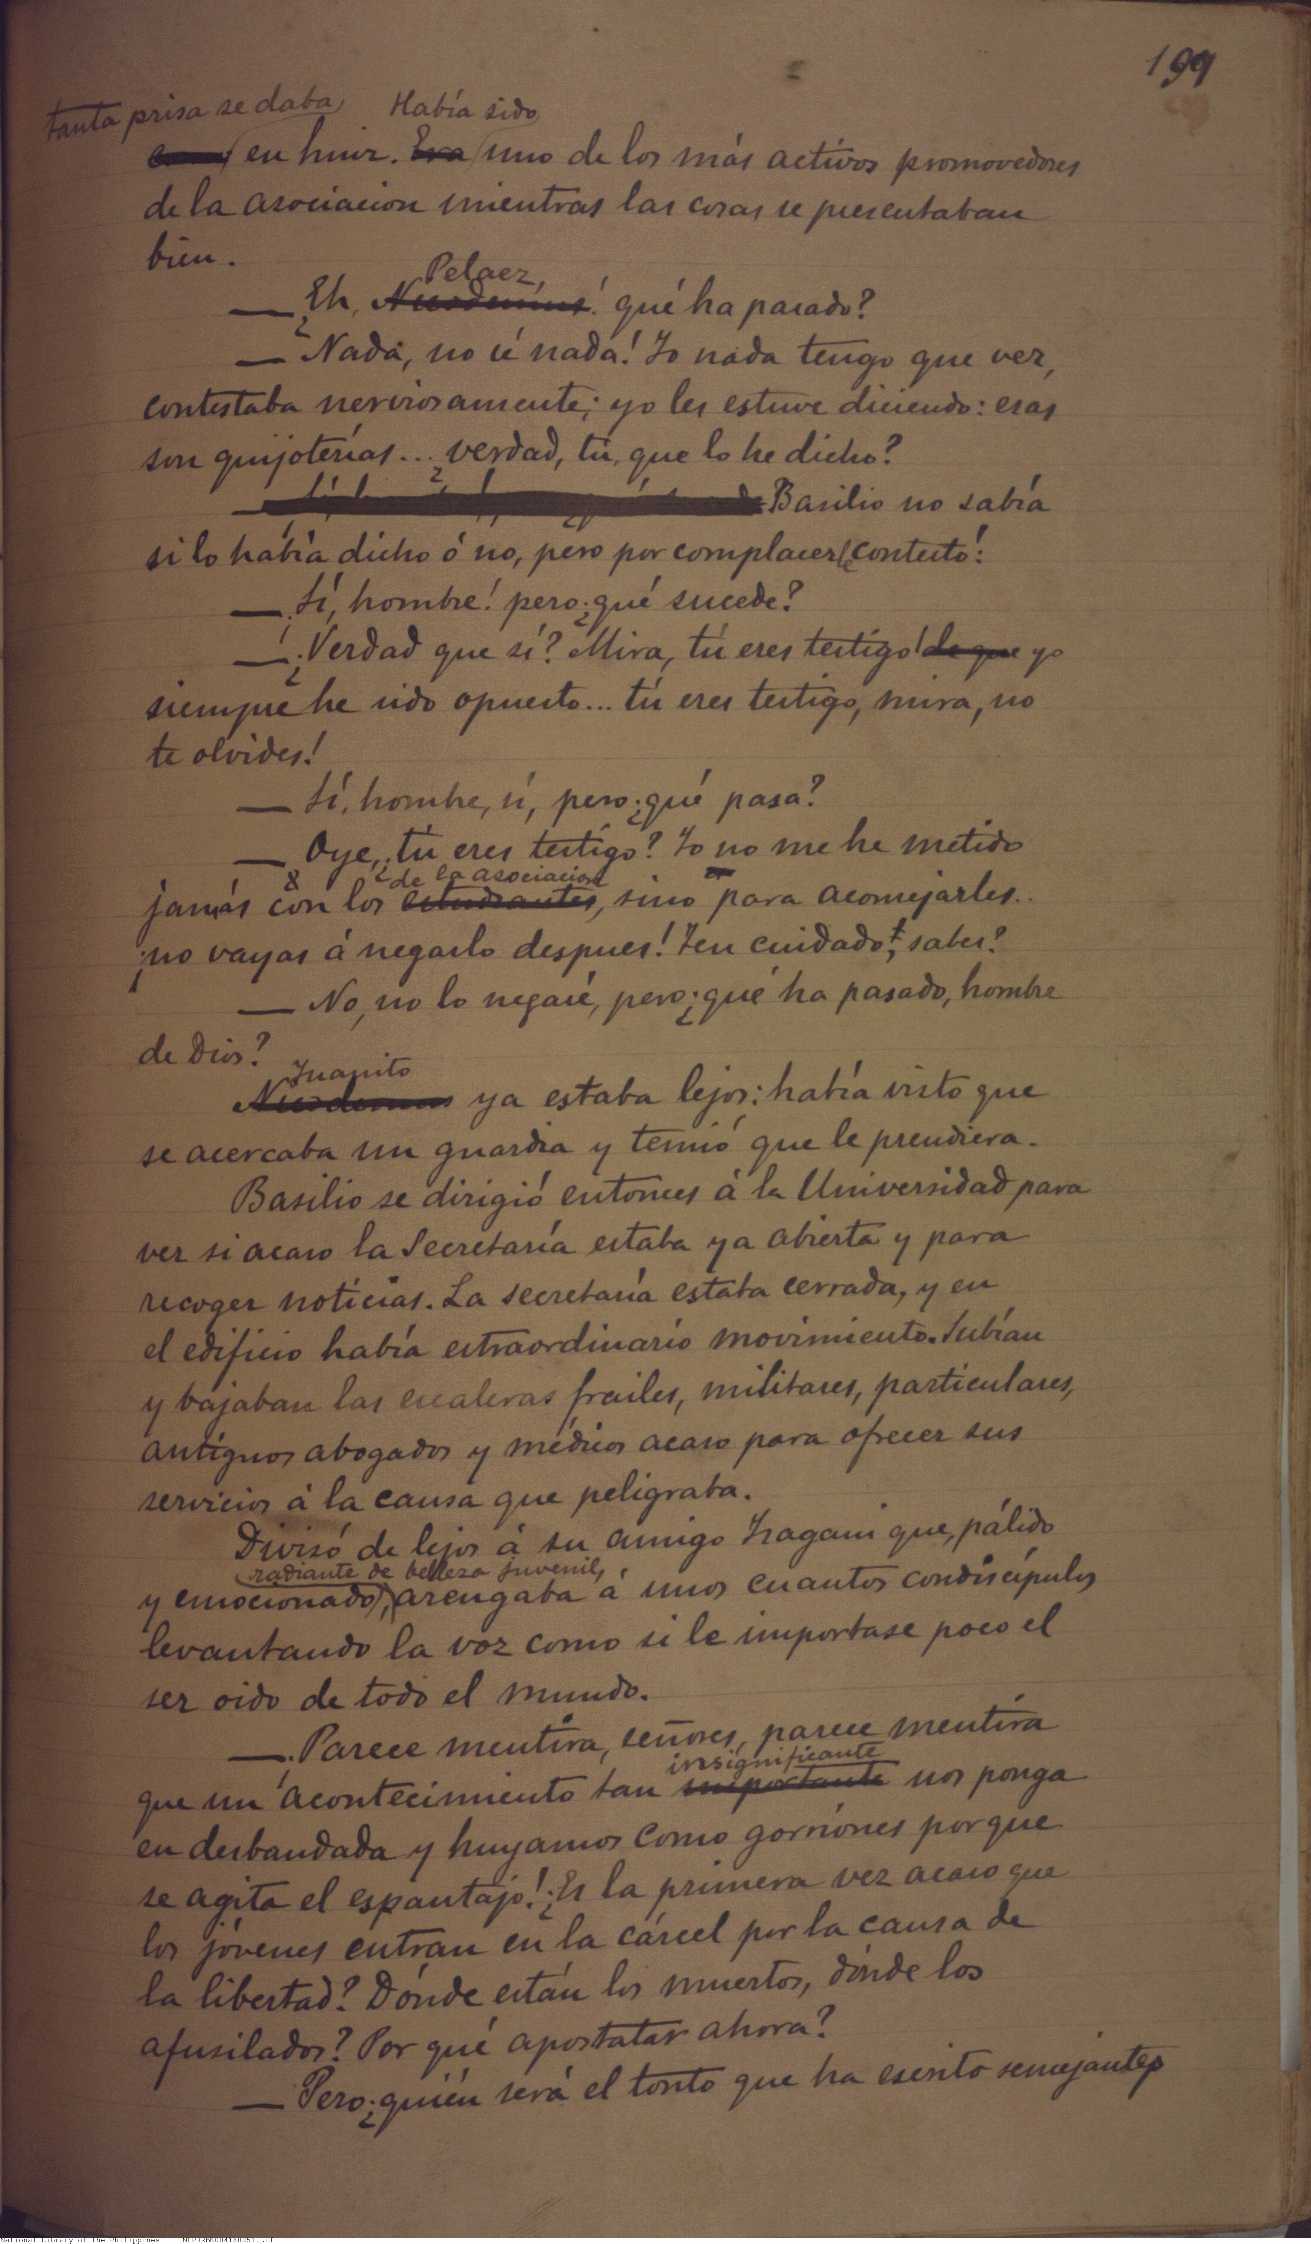 199
tanta prisa se daba Había sido
en huir. Era uno de los más activos promovedores
de la asociacion mientras las cosas se presentaban
bien.
Pelaez,
— Eh, Nicodemus! ¿qué ha pasado?
— Nada, no sé nada! Yo nada tengo que ver,
contestaba nerviosamente; yo les estuve diciendo: esas
son quijoterías... ¿verdad, tú, que lo he dicho?
Basilio no sabía
si lo había dicho ó no, pero por complacerle contestó:
— ¡Sí, hombre! pero ¿qué sucede?
— ¿Verdad que sí? Mira, tú eres testigo! de que yo
siempre he sido opuesto... tú eres testigo, mira, no
te olvides!
— Sí, hombre, sí, pero ¿qué pasa?
— Oye, ¿tú eres testigo? Yo no me he metido
de la asociacion
jamás con los estudiantes, sino para aconsejarles..
¡no vayas á negarlo despues! Ten cuidado, sabes?
— No, no lo negaré, pero ¿qué ha pasado, hombre
de Dios?
Juanito
Nicodemus ya estaba lejos: había visto que
se acercaba un guardia y temió que le prendiera.
Basilio se dirigió entonces á la Universidad para
ver si acaso la Secretaría estaba ya abierta y para
recoger noticias. La secretaría estaba cerrada, y en
el edificio había estraordinario movimiento. Subían
y bajaban las escaleras frailes, militares, particulares,
antiguos abogados y médicos acaso para ofrecer sus
servicios á la causa que peligraba.
Divisó de lejos á su amigo Isagani que, pálido
radiante de belleza juvenil,
y emocionado, arengaba á unos cuantos condiscípulos
levantando la voz como si le importase poco el
ser oido de todo el mundo.
— ¡Parece mentira, señores, parece mentira
insignificante
que un acontecimiento tan importante nos ponga
en desbandada y huyamos como gorriones porque
se agita el espantajo! ¿Es la primera vez acaso que
los jóvenes entran en la cárcel por la causa de
la libertad? Dónde están los muertos, dónde los
afusilados? Por qué apostatar ahora?
— Pero ¿quién será el tonto que ha escrito semejantes
National Library of the Philippines